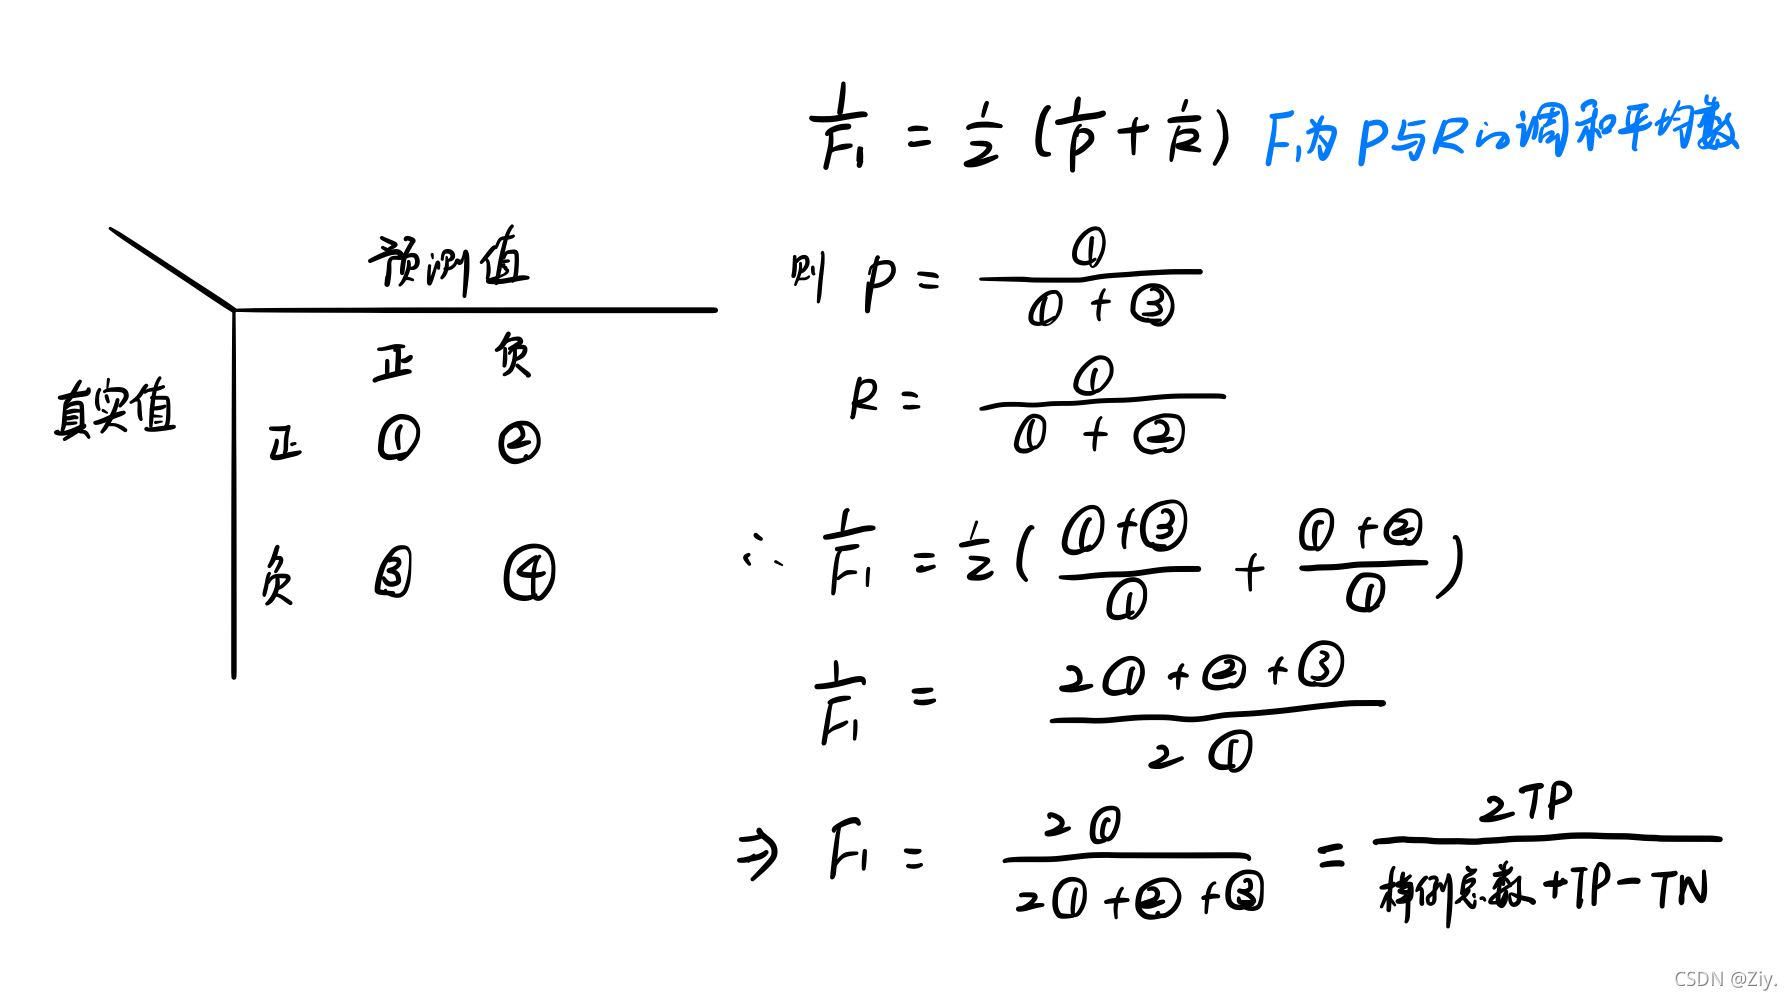 1/F₁ = 1/2 (1/P + 1/R) F₁为P与R的调和平均数
预测值
正 负
真实值
正 ① ②
负 ③ ④
则 P = ①/(①+③)
R = ①/(①+②)
∴ 1/F₁ = 1/2 ((①+③)/① + (①+②)/①)
1/F₁ = (2①+②+③)/(2①)
⇒ F₁ = 2①/(2①+②+③) = 2TP/(样例总数+TP-TN)
CSDN @Ziy.